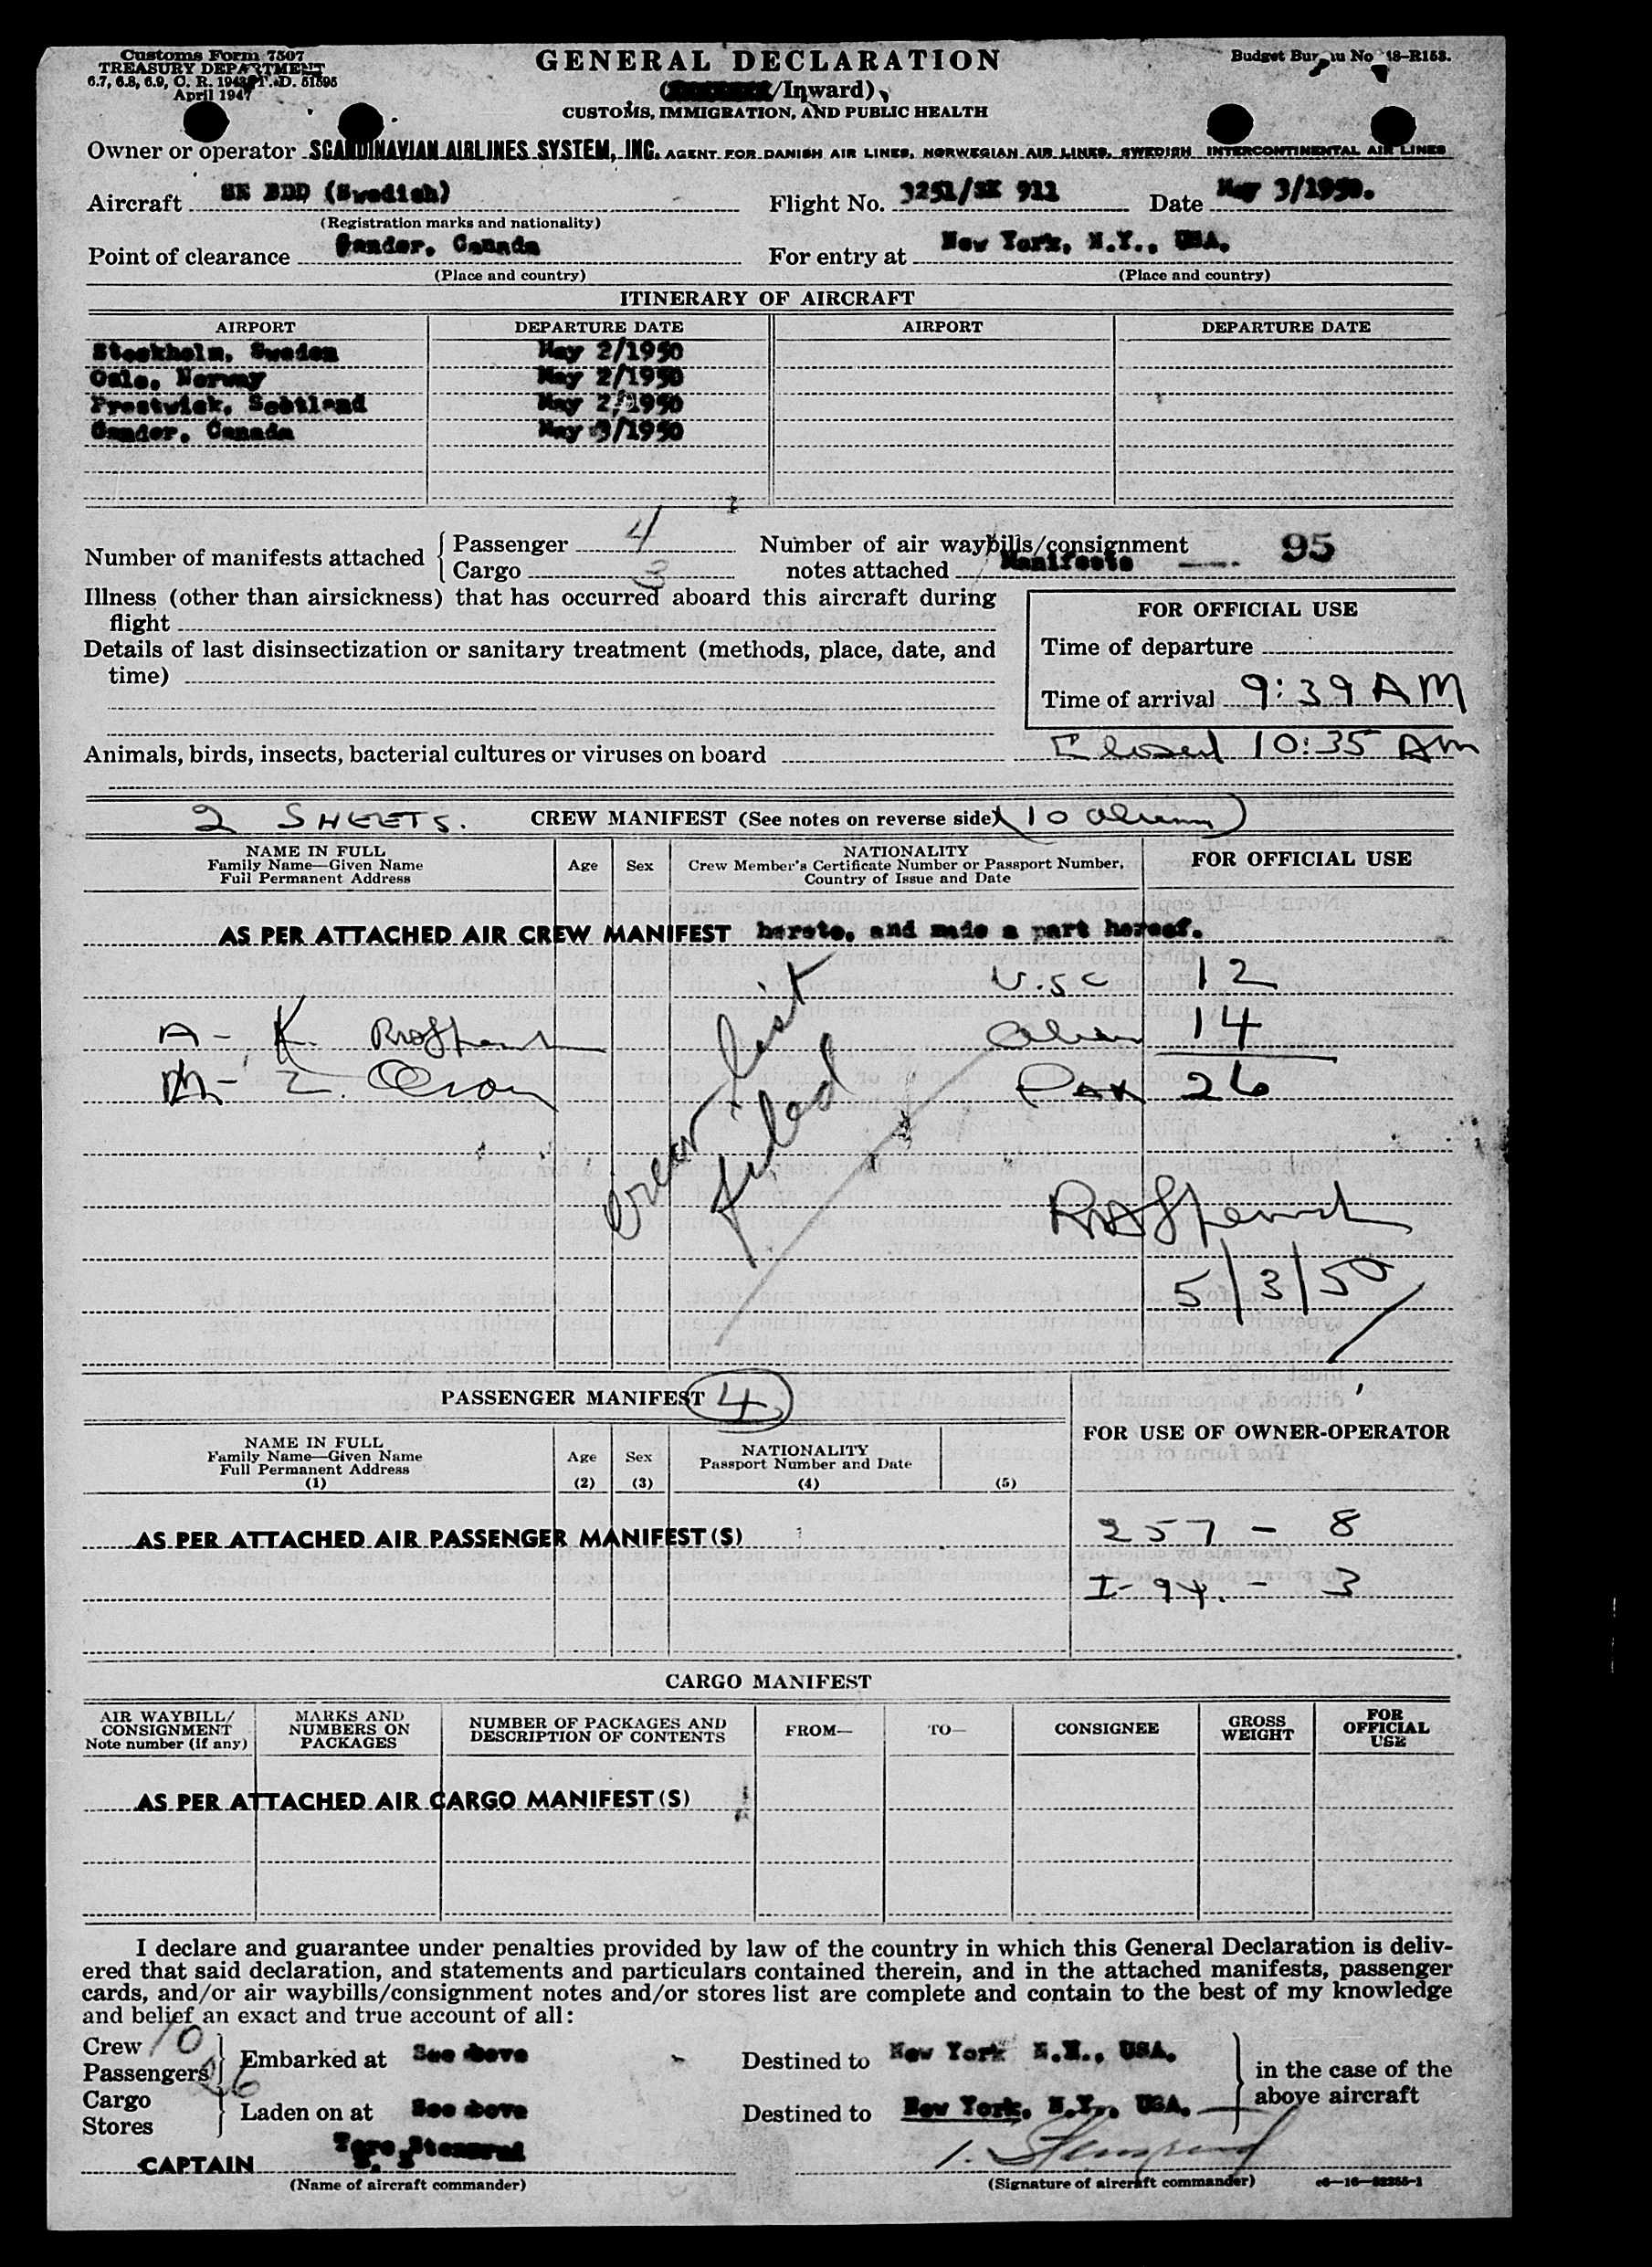 Customs Form 7507
TREASURY DEPARTMENT
6.7, 6.8, 6.9, C. R. 1943; T. D. 51595
April 1947
GENERAL DECLARATION
(/Inward)
CUSTOMS, IMMIGRATION, AND PUBLIC HEALTH
Budget Bureau No. 48-R153.
Owner or operator SCANDINAVIAN AIRLINES SYSTEM, INC. AGENT FOR DANISH AIR LINES, NORWEGIAN AIR LINES, SWEDISH INTERCONTINENTAL AIR LINES
Aircraft SE BDD (Swedish) Flight No. 3251/SK 911 Date May 3/1950.
(Registration marks and nationality)
Point of clearance Gander, Canada For entry at New York, N.Y., USA.
(Place and country) (Place and country)
ITINERARY OF AIRCRAFT
AIRPORT DEPARTURE DATE AIRPORT DEPARTURE DATE
Stockholm, Sweden May 2/1950
Oslo, Norway May 2/1950
Prestwick, Scotland May 2/1950
Gander, Canada May 3/1950
Number of manifests attached { Passenger 4
Cargo 3
Number of air waybills/consignment
notes attached Manifests 95
Illness (other than airsickness) that has occurred aboard this aircraft during
flight
Details of last disinsectization or sanitary treatment (methods, place, date, and
time)
FOR OFFICIAL USE
Time of departure
Time of arrival 9:39 AM
Closed 10:35 AM
Animals, birds, insects, bacterial cultures or viruses on board
2 SHEETS. CREW MANIFEST (See notes on reverse side) (10 aliens)
NAME IN FULL
Family Name—Given Name
Full Permanent Address
Age
Sex
NATIONALITY
Crew Member's Certificate Number or Passport Number,
Country of Issue and Date
FOR OFFICIAL USE
AS PER ATTACHED AIR CREW MANIFEST hereto, and made a part hereof.
U.S.C 12
A - K.
Alien 14
M - Z. Olson
Pax 26
Crew list
filed
5/3/50
PASSENGER MANIFEST 4
NAME IN FULL
Family Name—Given Name
Full Permanent Address
(1)
Age
(2)
Sex
(3)
NATIONALITY
Passport Number and Date
(4)
(5)
FOR USE OF OWNER-OPERATOR
AS PER ATTACHED AIR PASSENGER MANIFEST(S)
257 - 8
I-94. - 3
CARGO MANIFEST
AIR WAYBILL/
CONSIGNMENT
Note number (if any)
MARKS AND
NUMBERS ON
PACKAGES
NUMBER OF PACKAGES AND
DESCRIPTION OF CONTENTS
FROM—
TO—
CONSIGNEE
GROSS
WEIGHT
FOR
OFFICIAL
USE
AS PER ATTACHED AIR CARGO MANIFEST(S)
I declare and guarantee under penalties provided by law of the country in which this General Declaration is deliv-
ered that said declaration, and statements and particulars contained therein, and in the attached manifests, passenger
cards, and/or air waybills/consignment notes and/or stores list are complete and contain to the best of my knowledge
and belief an exact and true account of all:
Crew 10
Passengers 26
Embarked at See above Destined to New York N.Y., USA.
in the case of the
above aircraft
Cargo
Stores
Laden on at See above Destined to New York, N.Y., USA.
CAPTAIN
(Name of aircraft commander) (Signature of aircraft commander)